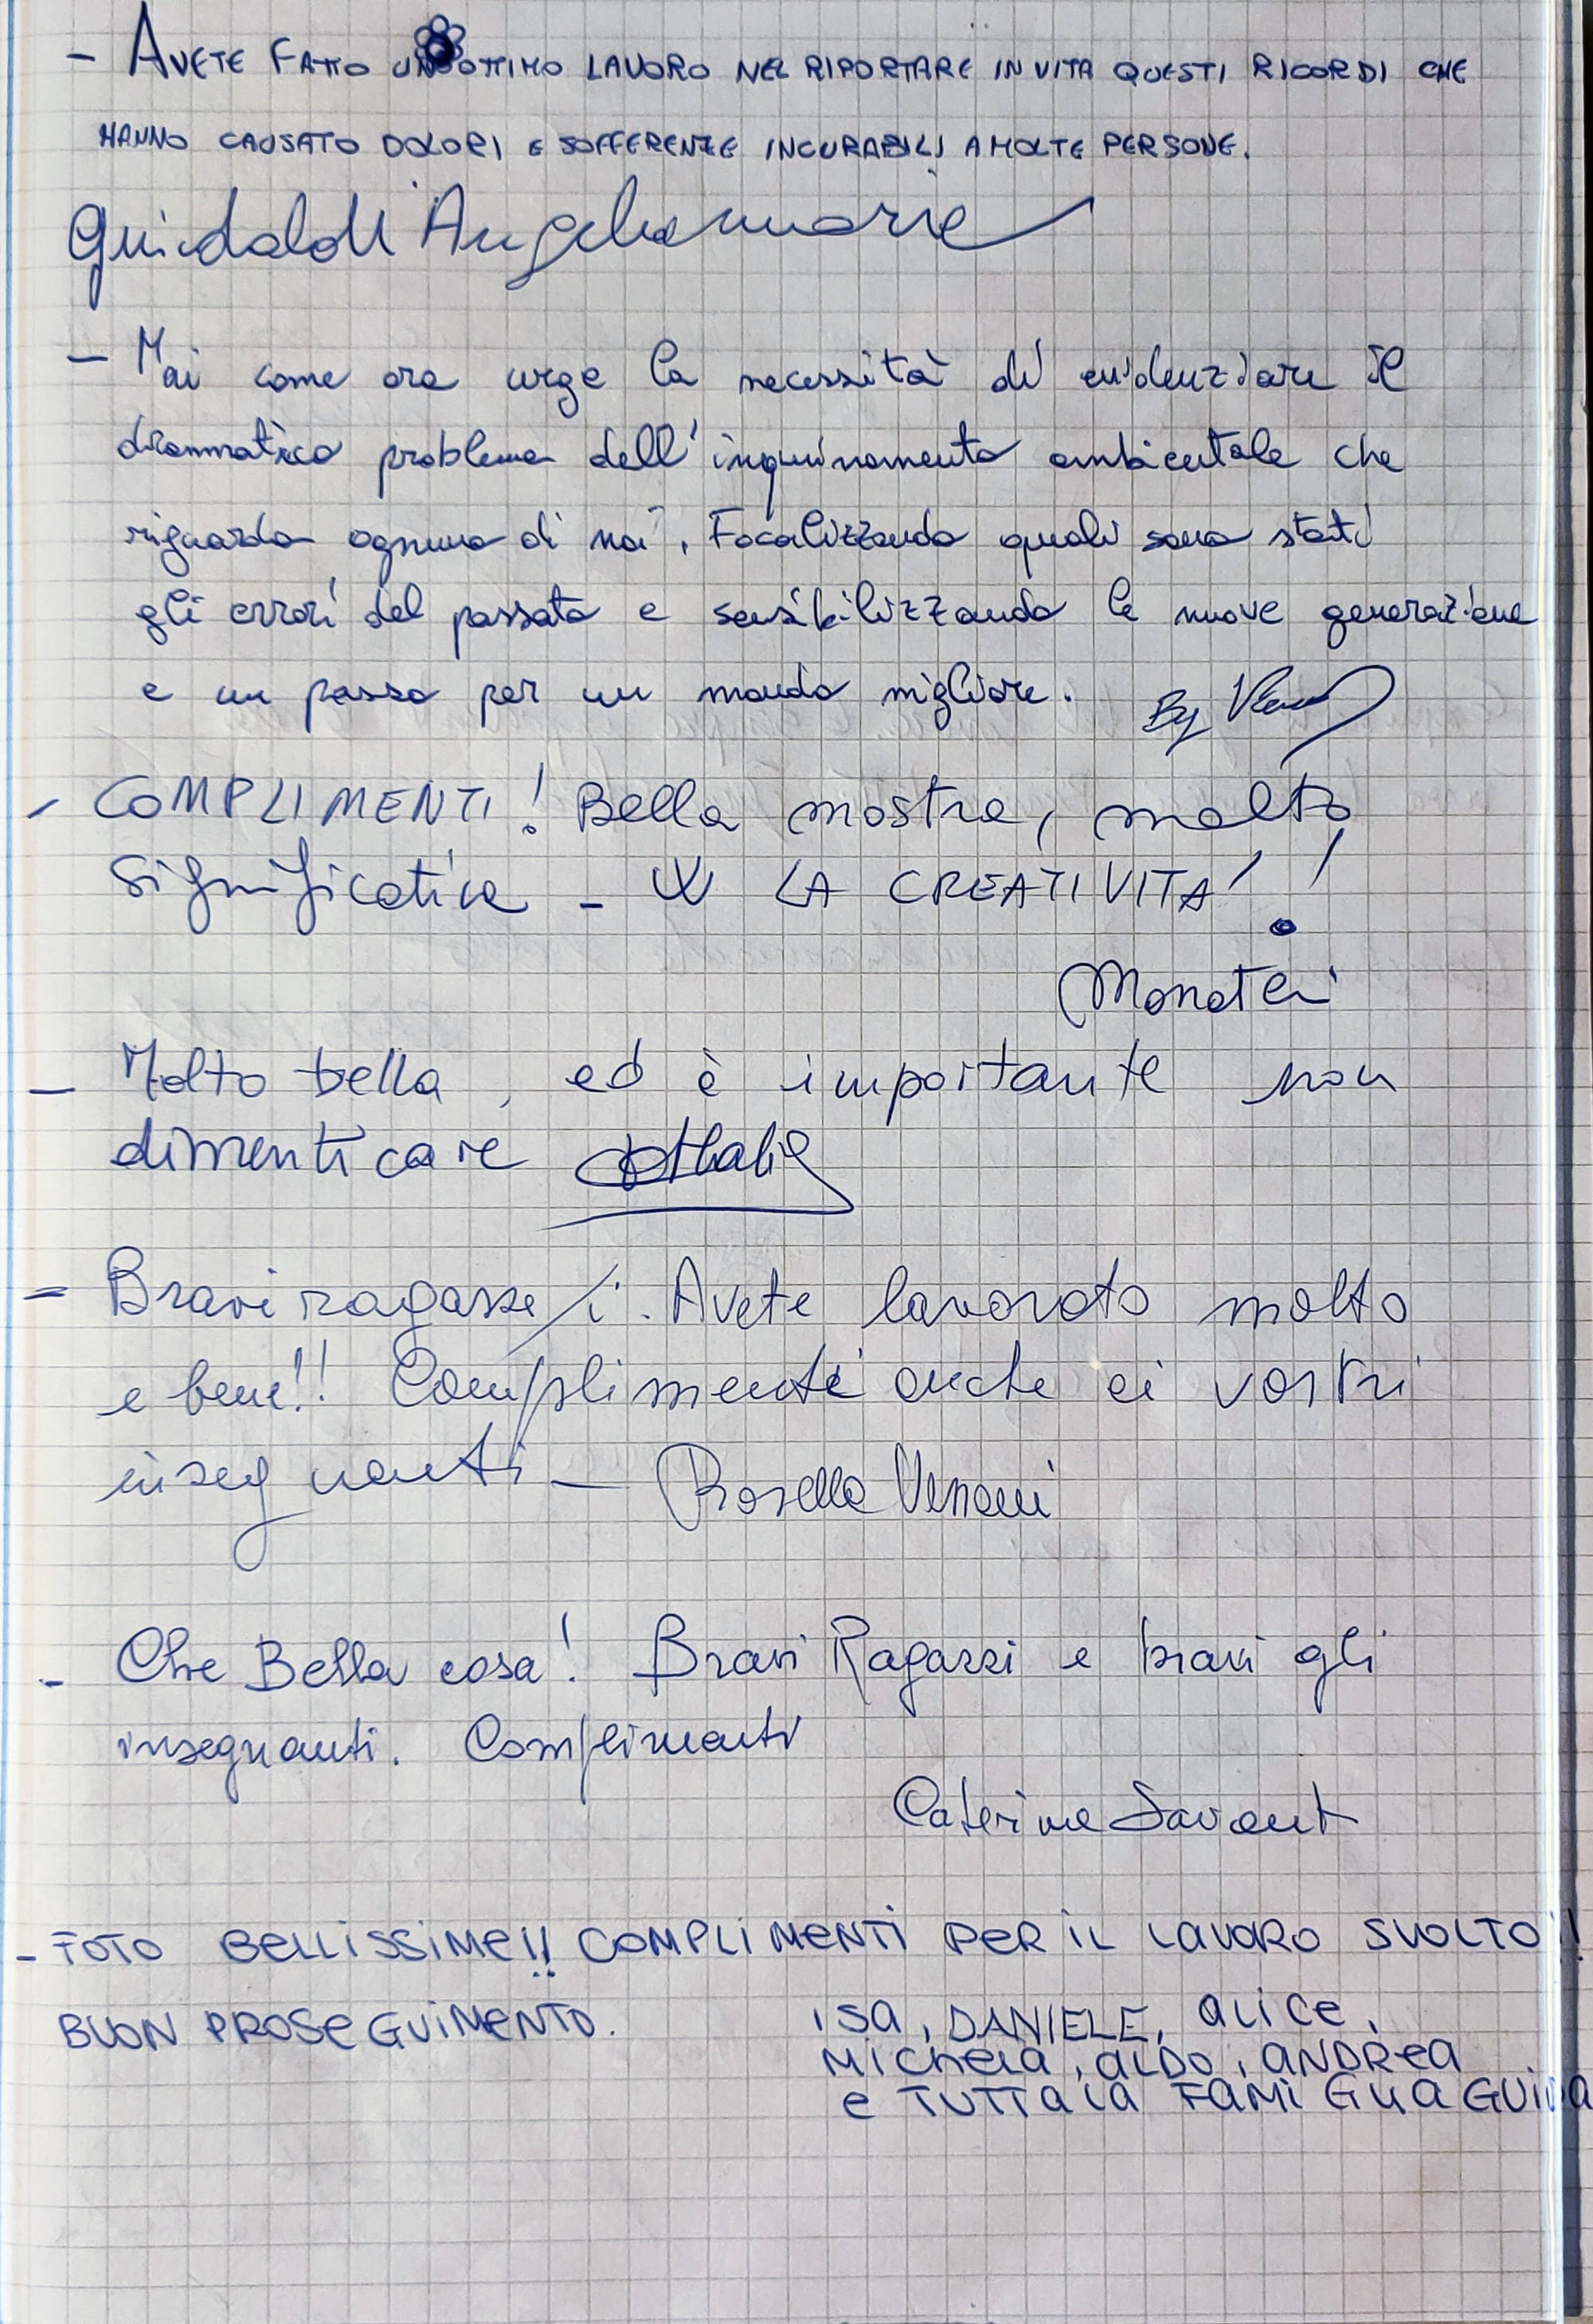 - AVETE FATTO UN OTTIMO LAVORO NEL RIPORTARE IN VITA QUESTI RICORDI CHE
HANNO CAUSATO DOLORI E SOFFERENZE INCURABILI A MOLTE PERSONE.
Guindaloll Angelamaria
- Mai come ora urge la necessità di evidenziare il
drammatico problema dell'inquinamento ambientale che
riguarda ognuno di noi. Focalizzando quali sono stati
gli errori del passato e sensibilizzando le nuove generazione
e un passo per un mondo migliore. By
- COMPLIMENTI! Bella mostra, molto
significativa - W LA CREATIVITA'!
Monateri
- Molto bella, ed è importante non
dimenticare
- Bravi ragazze/i. Avete lavorato molto
e bene!! Complimenti anche ai vostri
insegnanti - Rosella
- Che Bella cosa! Bravi Ragazzi e bravi gli
insegnanti. Complimenti
Caterina Savant
- FOTO BELLISSIME!! COMPLIMENTI PER IL LAVORO SVOLTO!!
BUON PROSEGUIMENTO. ISA, DANIELE, ALICE,
MICHELA, ALDO, ANDREA
e TUTTA LA FAMIGLIA